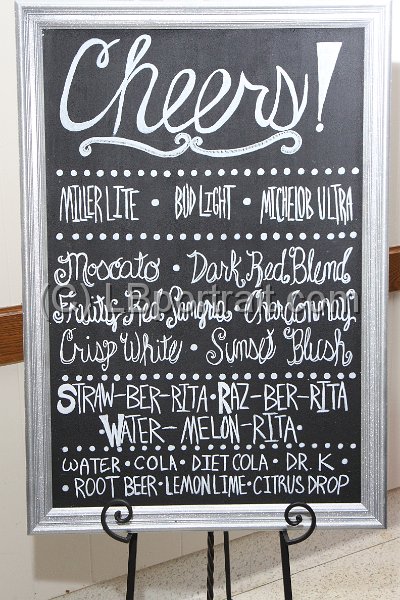 Cheers!
MILLER LITE • BUD LIGHT • MICHELOB ULTRA
Moscato • Dark Red Blend
Fruity Red Sangria • Chardonnay
Crisp White • Sunset Blush
STRAW-BER-RITA • RAZ-BER-RITA
WATER-MELON-RITA •
WATER • COLA • DIET COLA • DR. K
• ROOT BEER • LEMON LIME • CITRUS DROP
(C) LBportrait.com